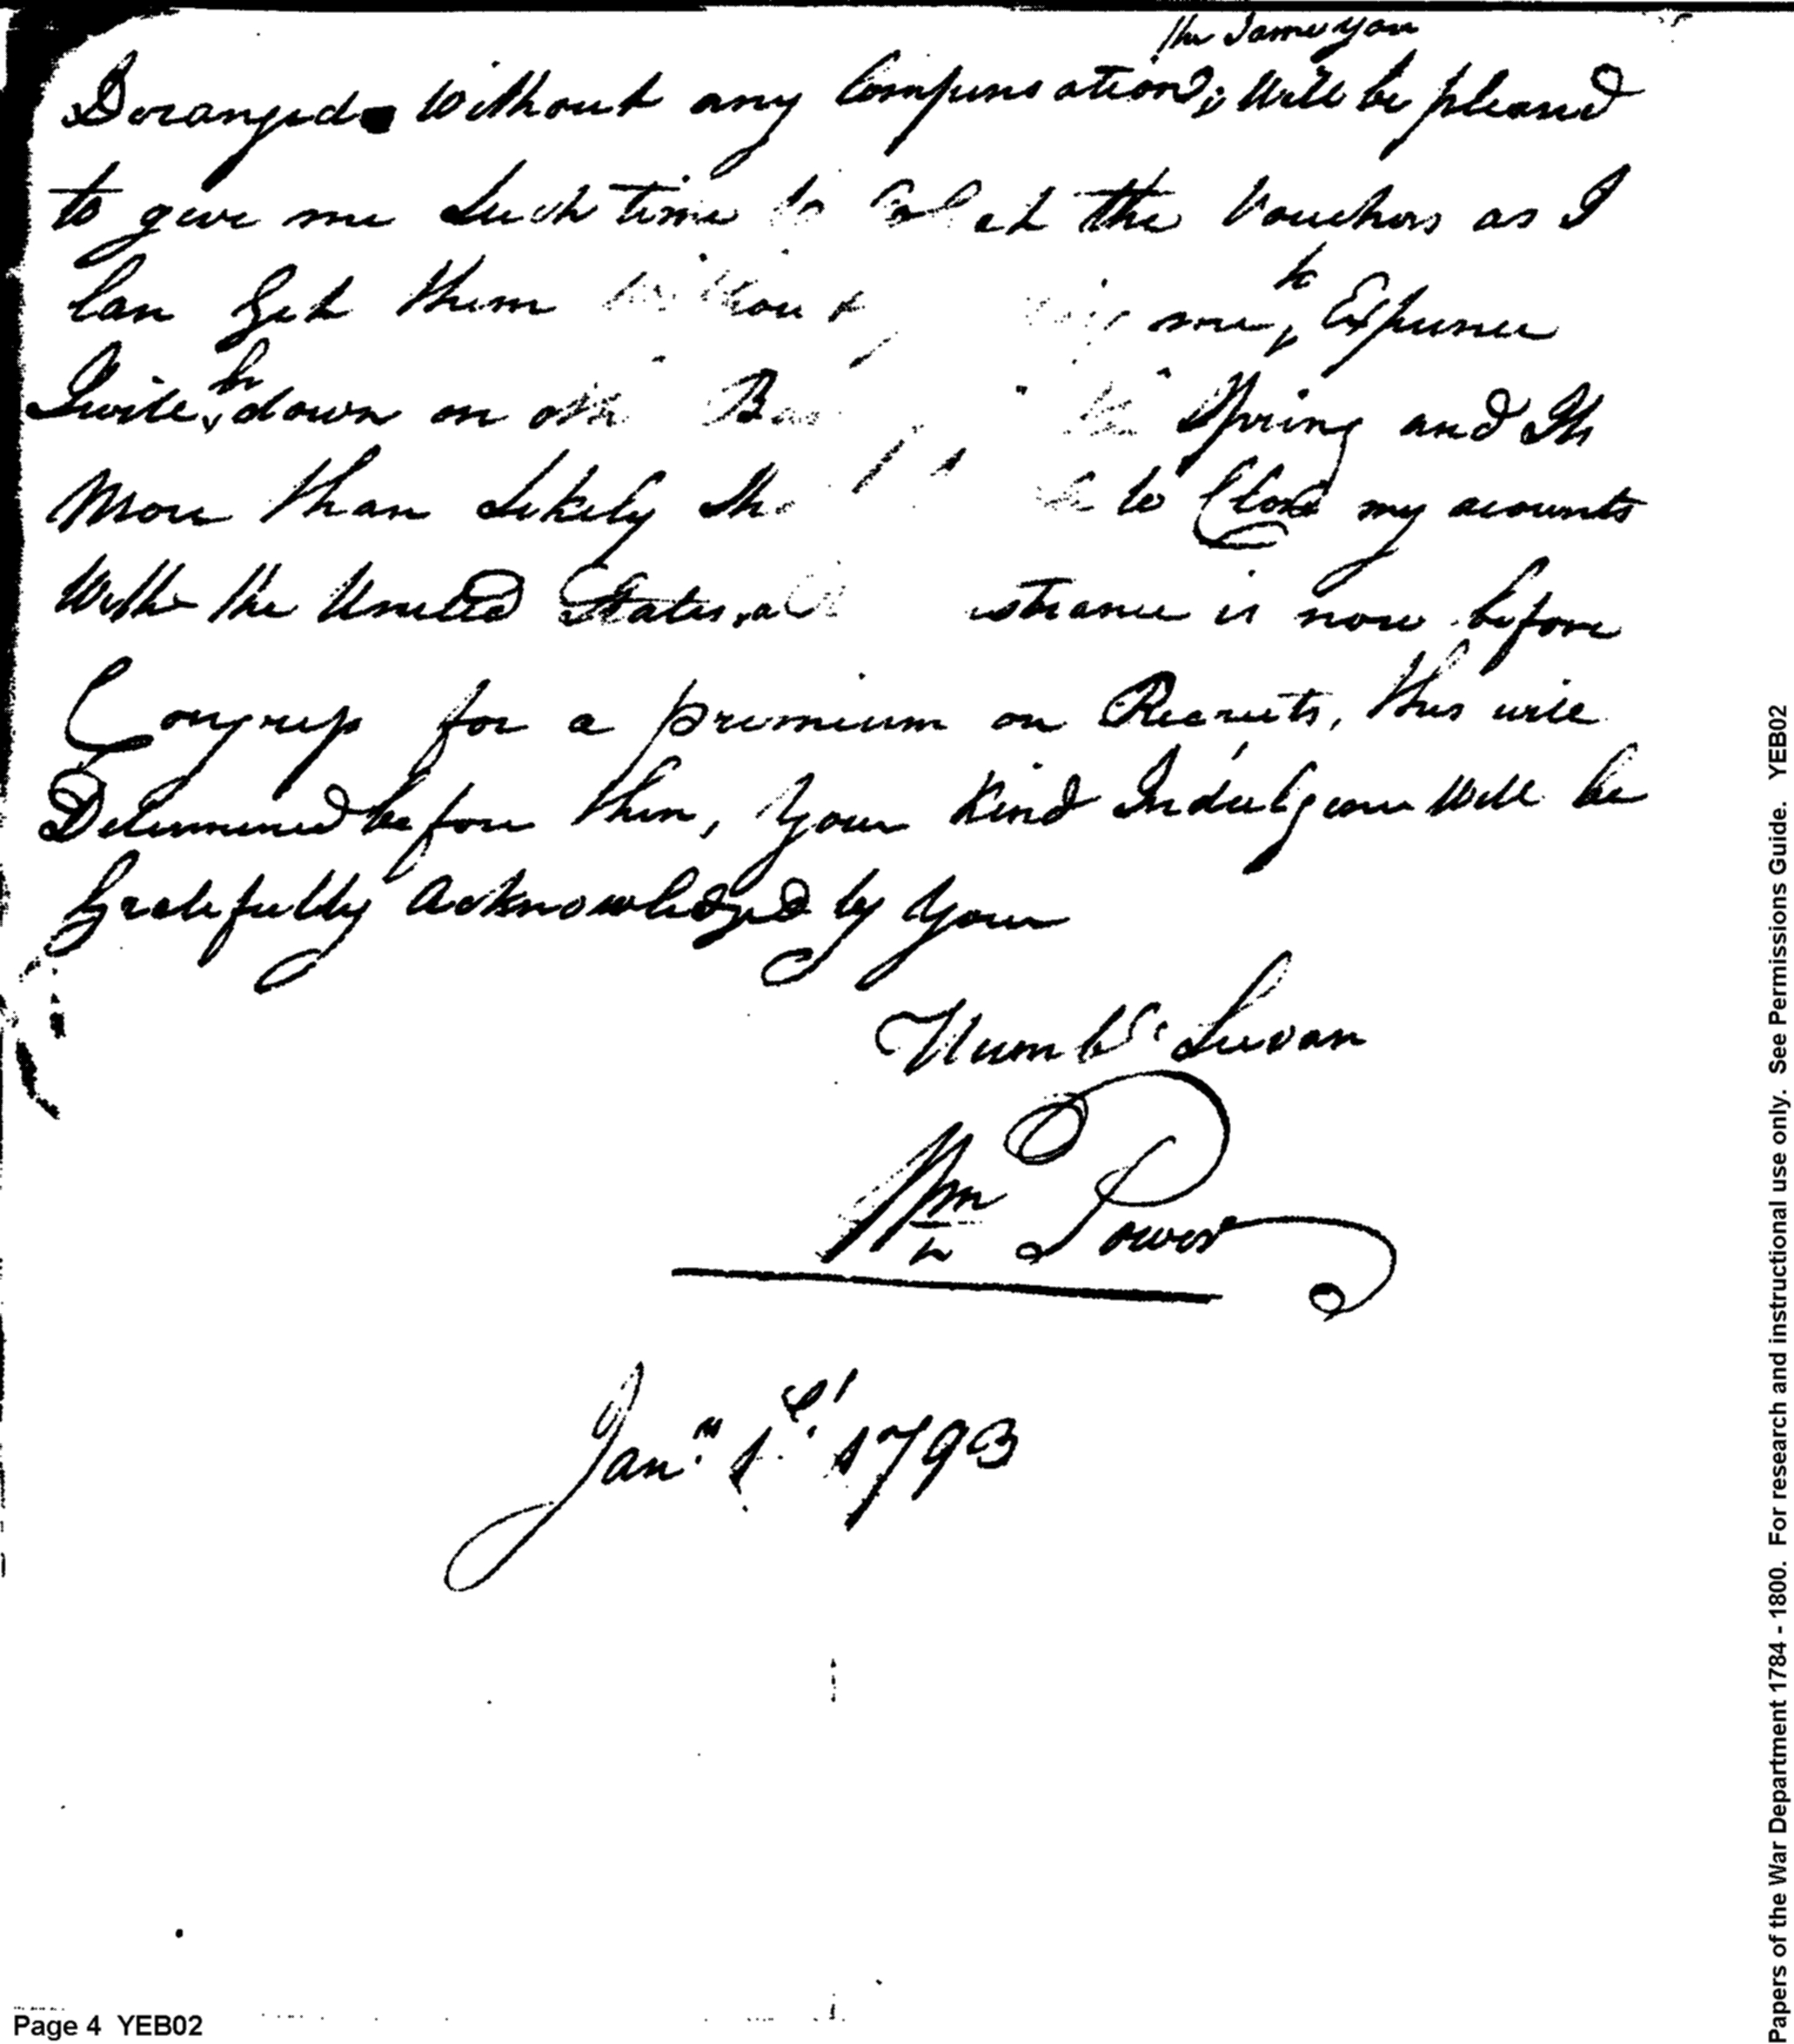 the Same you
Deranged Without any Compensation, Will be pleasd
to give me Such time to Col ct the Vouchers as I
Can get them without me to Expence
I will be down on the spring and Its
More than Likely Sha to Close my acounts
With the United States, a istrance is now before
Congress for a premium on Recruits, this will
Determined before then, your Kind Indulgence Will be
Gratefully Acknowledged by your
Hum be Servan
Wm Power
Jany 1st 1793
Page 4 YEB02
Papers of the War Department 1784 - 1800. For research and instructional use only. See Permissions Guide. YEB02